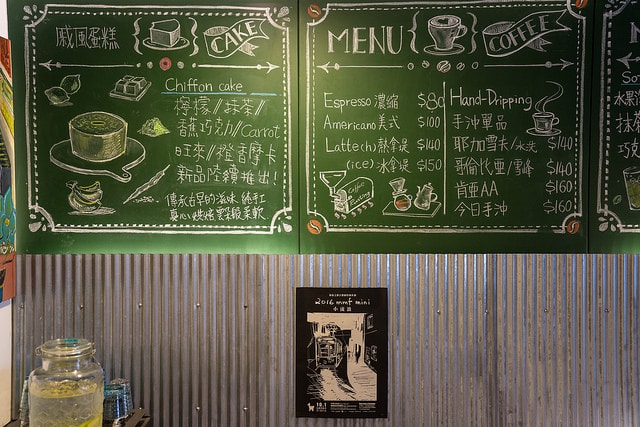 戚風蛋糕
CAKE
Chiffon cake
檸檬//抹茶//
香蕉巧克力//Carrot
旺來//橙香摩卡
新品陸續推出!
傳承古早的滋味 純手工
真心烘焙 柔軟
MENU
COFFEE
Espresso 濃縮 $80
Americano 美式 $100
Latte(h)熱拿堤 $140
(ice)冰拿堤 $150
Hand-Dripping
手沖單品
耶加雪卡/水洗 $140
哥倫比亞/雪峰 $140
肯亞AA $160
今日手沖 $160
Coffee
M
So
水果
抹茶
巧克
2016 mmt mini
小流浪
10.1